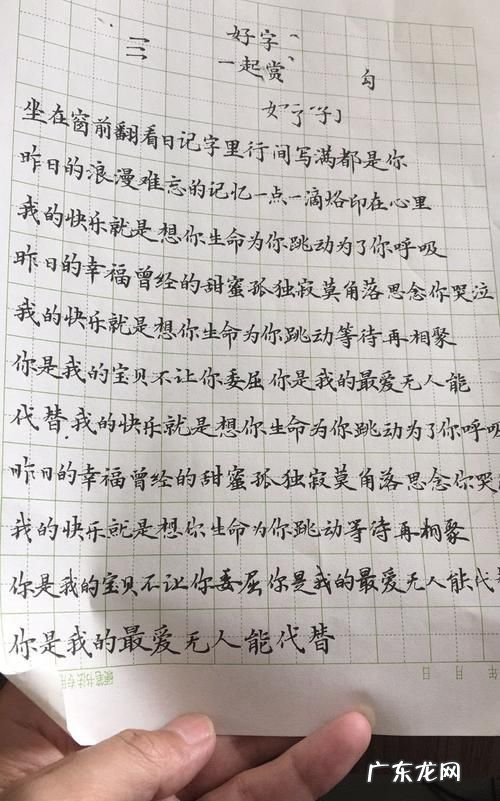 三 好字
一起赏 勾
坐在窗前翻看日记字里行间写满都是你
昨日的浪漫难忘的记忆一点一滴烙印在心里
我的快乐就是想你生命为你跳动为了你呼吸
昨日的幸福曾经的甜蜜孤独寂寞角落思念你哭泣
我的快乐就是想你生命为你跳动等待再相聚
你是我的宝贝不让你委屈你是我的最爱无人能
代替.我的快乐就是想你生命为你跳动为了你呼吸
昨日的幸福曾经的甜蜜孤独寂寞角落思念你哭
我的快乐就是想你生命为你跳动等待再相聚
你是我的宝贝不让你委屈你是我的最爱无人能代
你是我的最爱无人能代替
年 月 日
硬笔书法专用
广东龙网